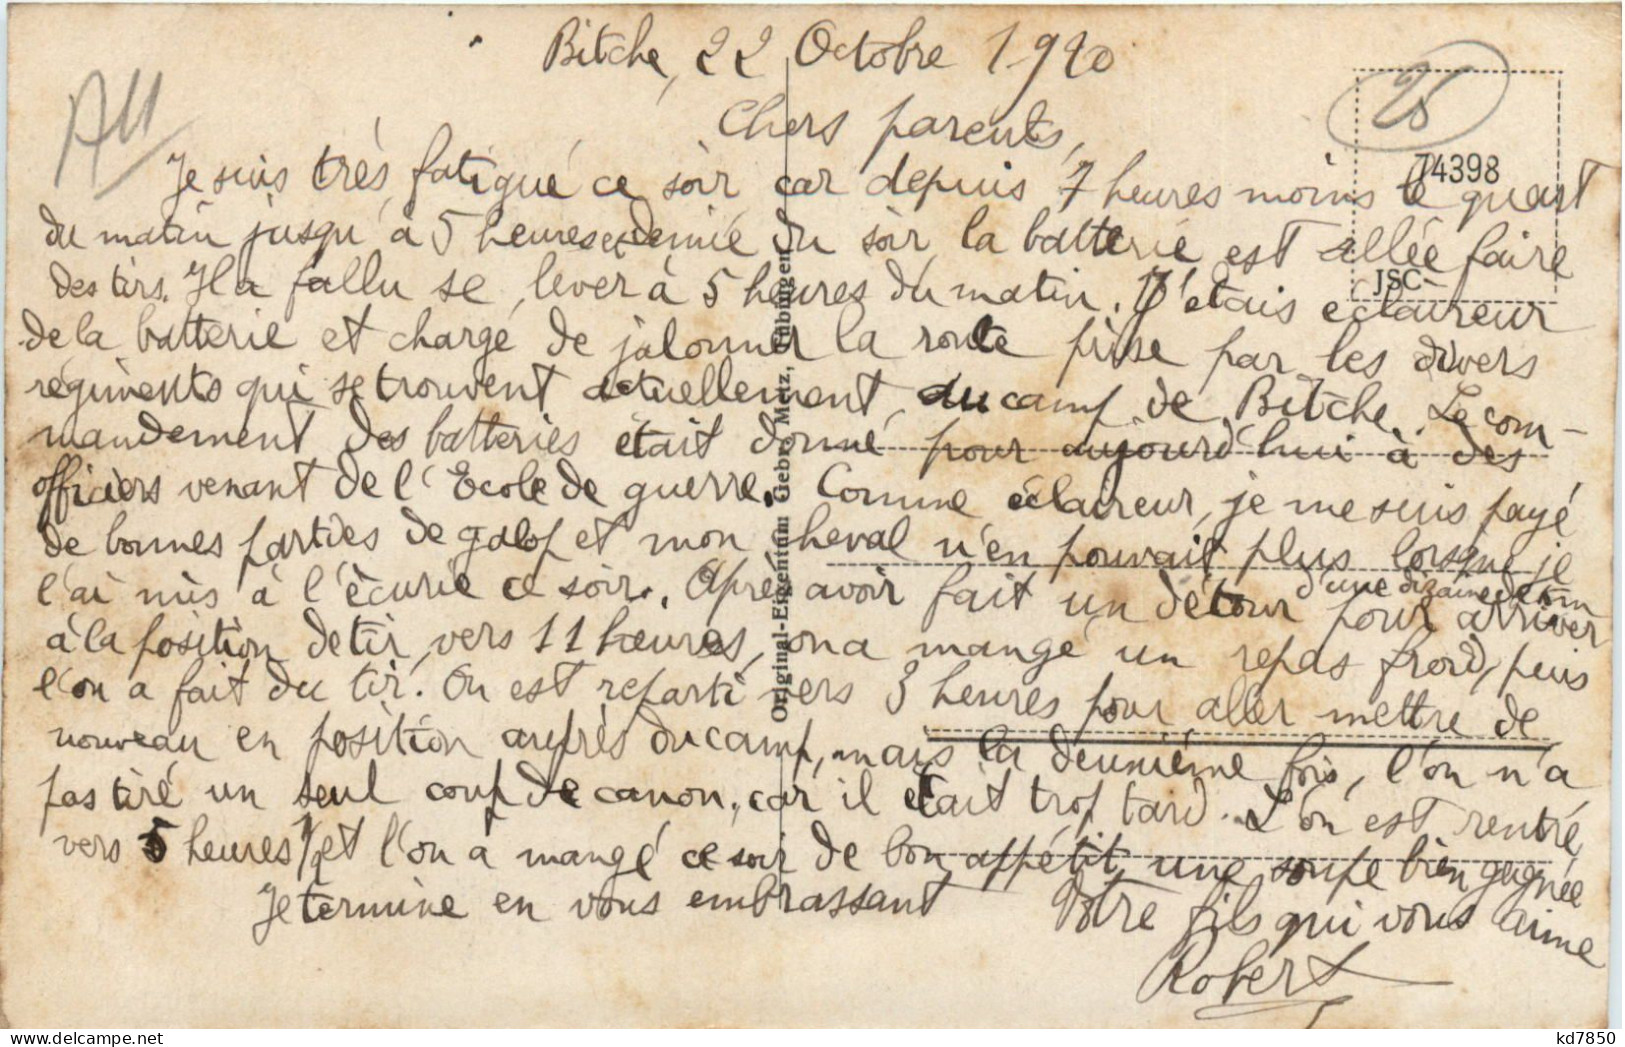 Bitche, 22 Octobre 1920
Chers parents,
Je suis très fatigué ce soir car depuis 7 heures moins le quart
du matin jusqu'à 5 heures et demie du soir la batterie est allée faire
des tirs. Il a fallu se lever à 5 heures du matin. J'étais éclaireur
de la batterie et chargé de jalonner la route prise par les divers
régiments qui se trouvent actuellement au camp de Bitche. Le com-
mandement des batteries était donné pour aujourd'hui à des
officiers venant de l'Ecole de guerre. Comme éclaireur, je me suis payé
de bonnes parties de galop et mon cheval n'en pouvait plus lorsque je
l'ai mis à l'écurie ce soir. Après avoir fait un détour d'une dizaine de km pour arriver
à la position de tir, vers 11 heures, on a mangé un repas froid, puis
l'on a fait du tir. On est reparti vers 3 heures pour aller mettre de
nouveau en position auprès du camp, mais la deuxième fois, l'on n'a
pas tiré un seul coup de canon, car il était trop tard. L'on est rentré
vers 5 heures 1/2 et l'on a mangé ce soir de bon appétit une soupe bien gagnée
Je termine en vous embrassant Votre fils qui vous aime
Robert
All
25
74398
JSC
Original-Eigentum Gebr. Metz, Tübingen
www.delcampe.net
kd7850